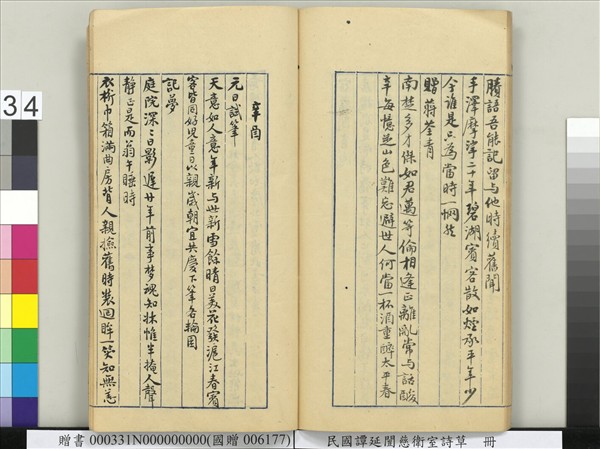 勝語吾能記留与他時續舊聞
手澤摩挲二十年碧湖賓客散如煙承平年少
今誰是只為當時一惘然
贈蔣荃青
南楚多才傑如君邁等倫相逢正離亂常与話酸
辛每憶
山色難忘避世人何當一杯酒重醉太平春
辛酉
元日試筆
天意如人意年新与世新雪餘晴日美花發滬江春賓
客皆同好児童日以親歲朝宜共慶下筆各輪囷
記夢
庭院深深日影遲廿年前事夢魂知牀惟半掩人聲
靜正是南翁午睡時
衣桁巾箱滿曲房背人親撫舊時裝迴眸一笑知無恙
34
贈書 000331N000000000(國贈 006177)
民國譚延闓慈衛室詩草 冊